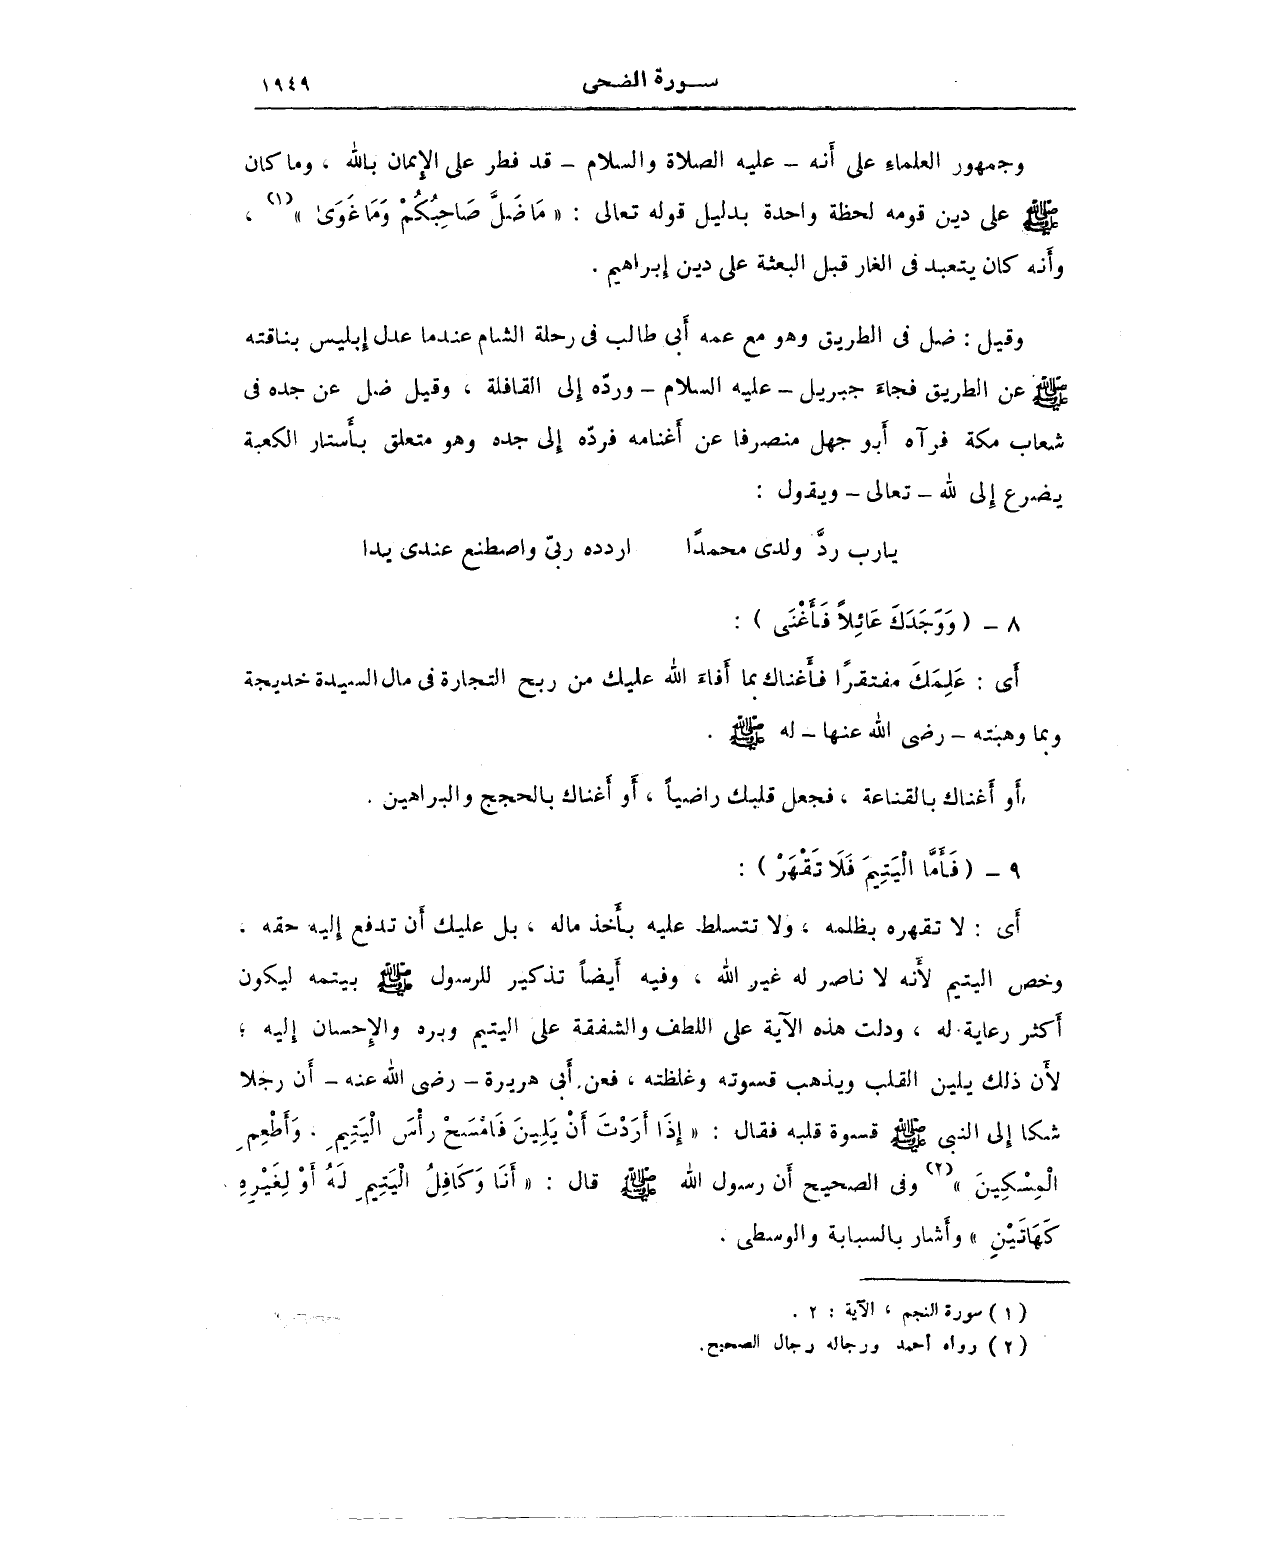 سـورة الضحى ١٩٤٩
وجمهور العلماء على أنه – عليه الصلاة والسلام – قد فطر على الإيمان بالله ، وما كان
ﷺ على دين قومه لحظة واحدة بدليل قوله تعالى : « مَا ضَلَّ صَاحِبُكُمْ وَمَا غَوَىٰ »(١) ،
وأنه كان يتعبد فى الغار قبل البعثة على دين إبراهيم .
وقيل : ضل فى الطريق وهو مع عمه أبى طالب فى رحلة الشام عندما عدل إبليس بناقته
ﷺ عن الطريق فجاءَ جبريل – عليه السلام – وردّه إلى القافلة ، وقيل ضل عن جده فى
شعاب مكة فرآه أبو جهل منصرفا عن أغنامه فردّه إلى جده وهو متعلق بأستار الكعبة
يضرع إلى لله – تعالى – ويقول :
يارب ردَّ ولدى محمدًا اردده ربىّ واصطنع عندى يدا
٨ – ( وَوَجَدَكَ عَائِلاً فَأَغْنَى ) :
أى : عَلِمَكَ مفتقرًا فأغناك بما أفاءَ الله عليك من ربح التجارة فى مال السيدة خديجة
وبما وهبته – رضى الله عنها – له ﷺ .
أو أغناك بالقناعة ، فجعل قلبك راضياً ، أو أغناك بالحجج والبراهين .
٩ – ( فَأَمَّا الْيَتِيمَ فَلَا تَقْهَرْ ) :
أى : لا تقهره بظلمه ، ولا تتسلط عليه بأخذ ماله ، بل عليك أن تدفع إليه حقه ،
وخص اليتيم لأنه لا ناصر له غير الله ، وفيه أيضاً تذكير للرسول ﷺ بيتمه ليكون
أكثر رعاية له ، ودلت هذه الآية على اللطف والشفقة على اليتيم وبره والإحسان إليه ؛
لأن ذلك يلين القلب ويذهب قسوته وغلظته ، فعن أبى هريرة – رضى الله عنه – أن رجلا
شكا إلى النبى ﷺ قسوة قلبه فقال : « إِذَا أَرَدْتَ أَنْ يَلِينَ فَامْسَحْ رأْسَ الْيَتِيمِ . وَأَطْعِمِ
الْمِسْكِينَ »(٢) وفى الصحيح أن رسول الله ﷺ قال : « أَنَا وَكَافِلُ الْيَتِيمِ لَهُ أَوْ لِغَيْرِهِ
كَهَاتَيْنِ » وأشار بالسبابة والوسطى .
(١) سورة النجم ، الآية : ٢ .
(٢) رواه أحمد ورجاله رجال الصحيح.